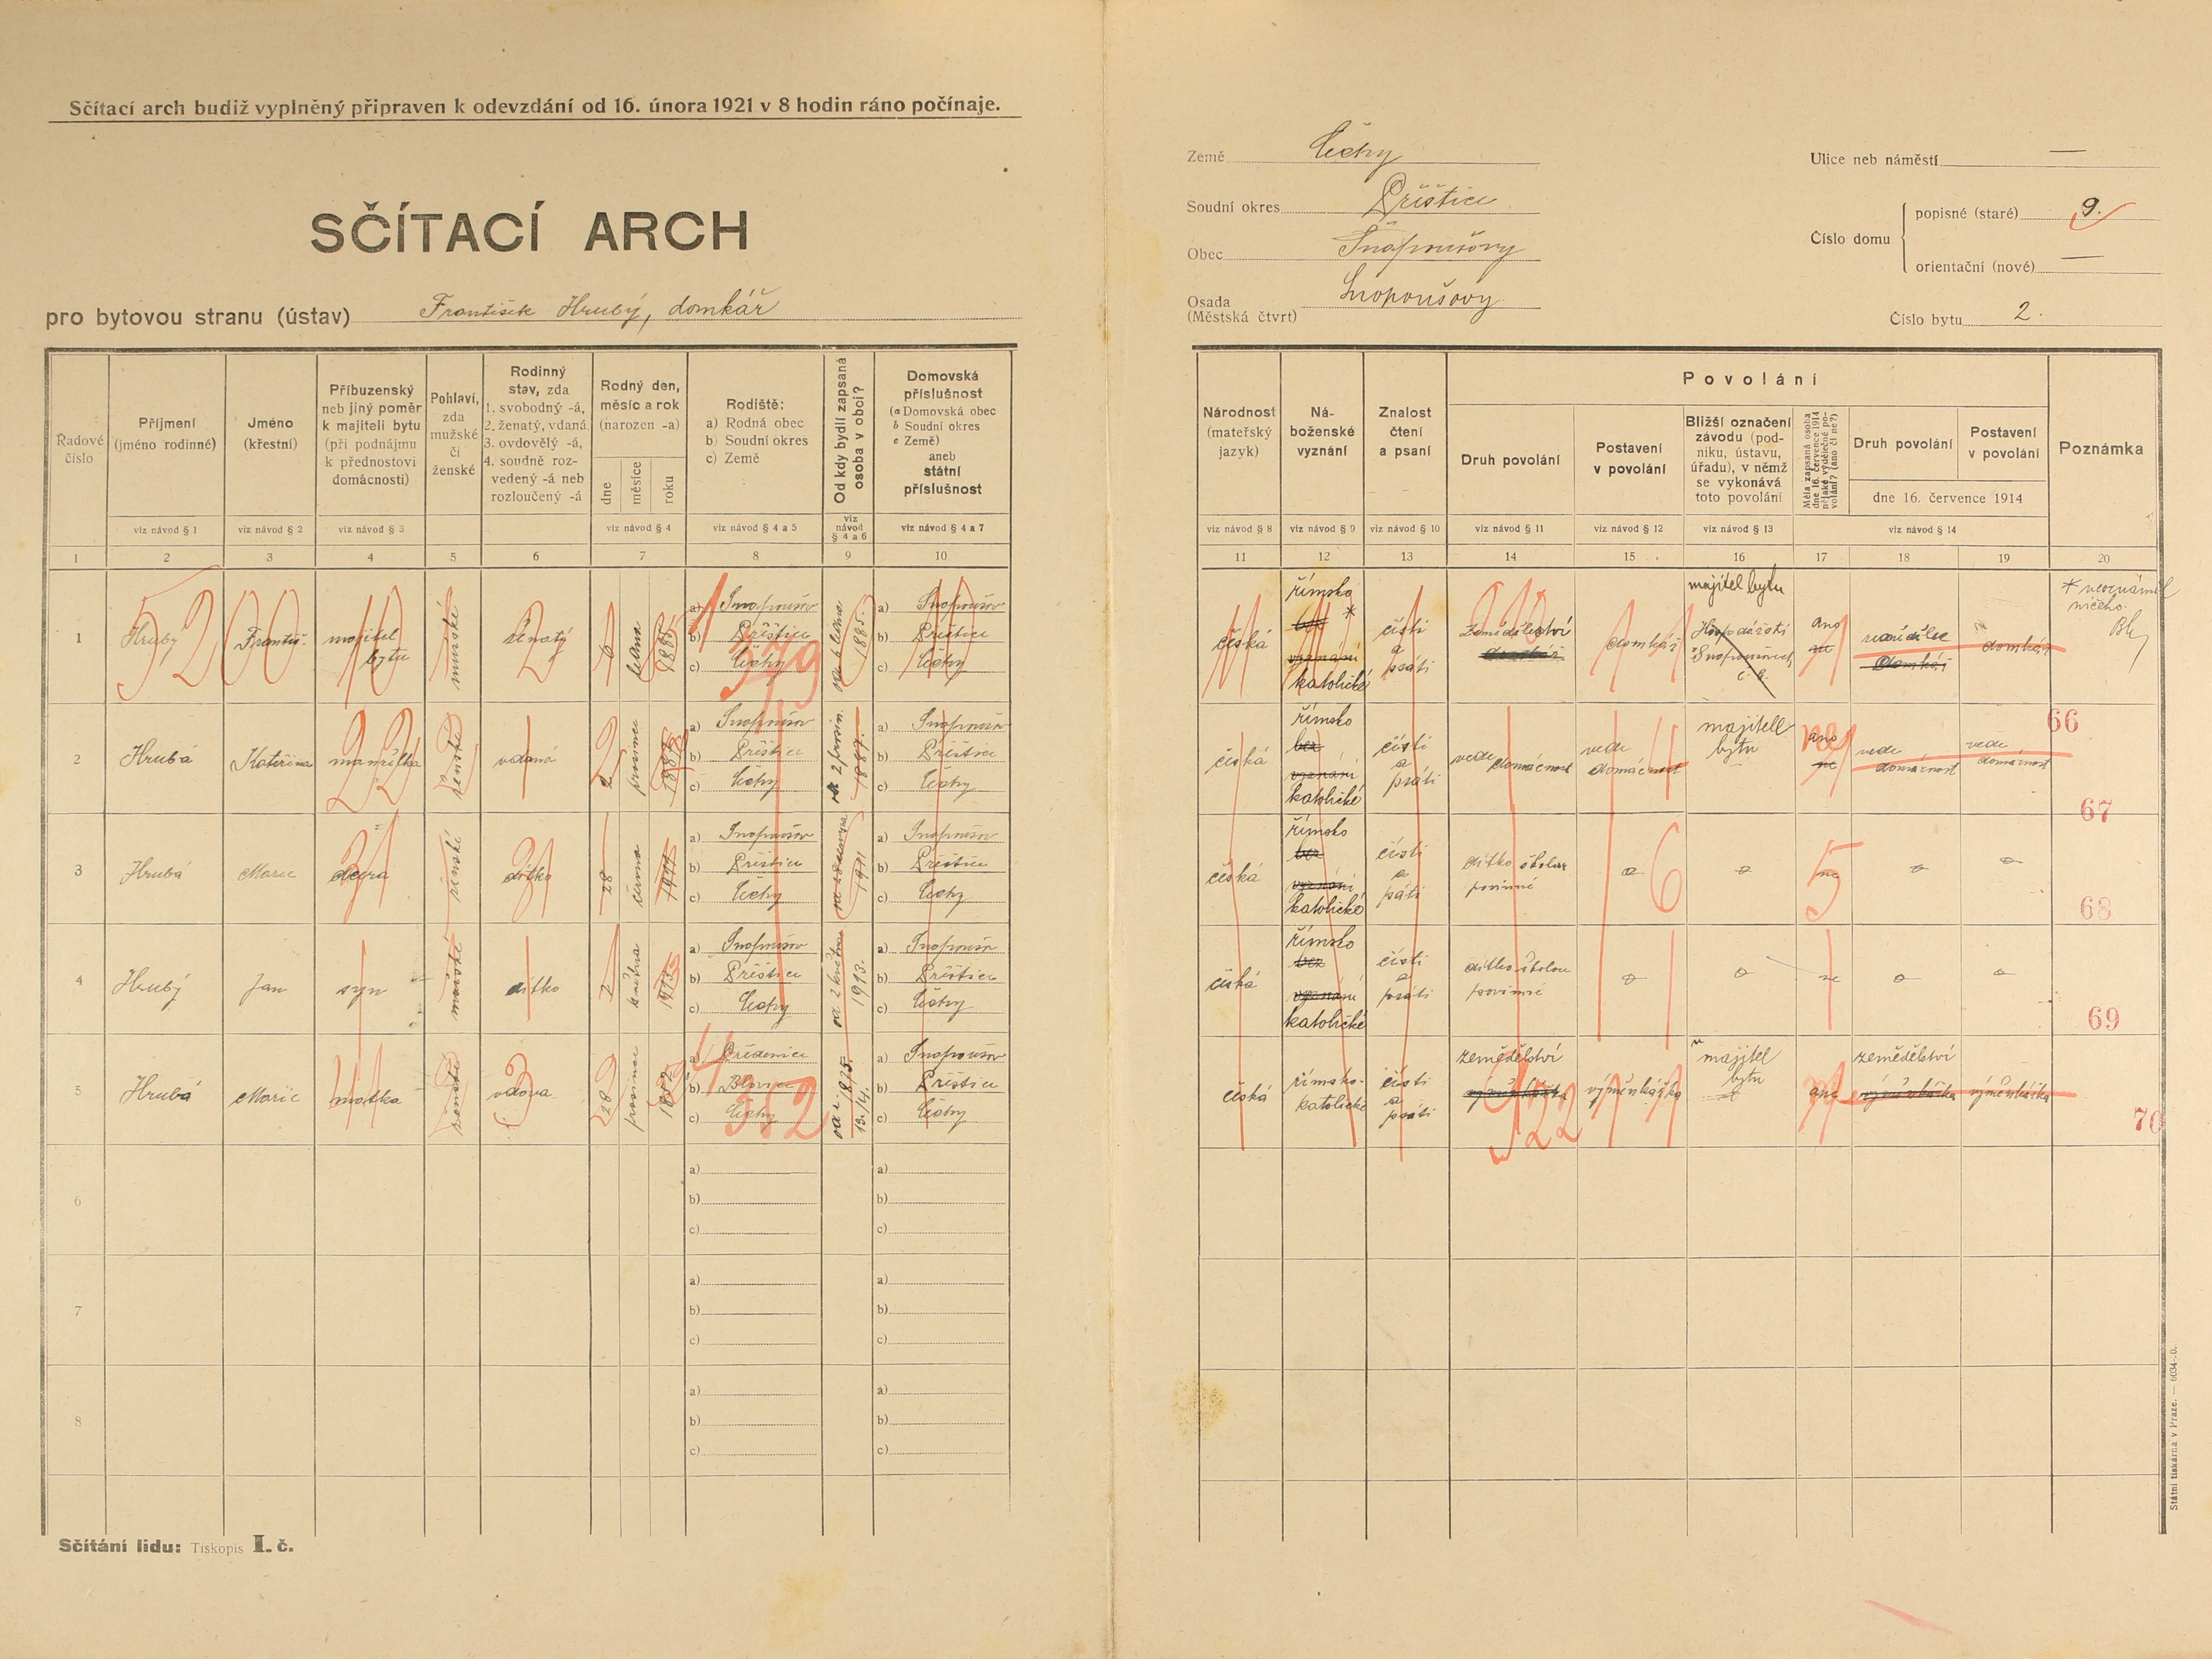 Sčítací arch budiž vyplněný připraven k odevzdání od 16. února 1921 v 8 hodin ráno počínaje.
SČÍTACÍ ARCH
pro bytovou stranu (ústav) František Hrubý, domkář
Země Čechy
Soudní okres Přeštice
Obec Snopoušovy
Osada Snopoušovy
(Městská čtvrt)
Ulice neb náměstí —
Číslo domu
popisné (staré) 9.
orientační (nové) —
Číslo bytu 2.
Řadové číslo
Příjmení (jméno rodinné)
Jméno (křestní)
Příbuzenský neb jiný poměr k majiteli bytu (při podnájmu k přednostovi domácnosti)
Pohlaví, zda mužské či ženské
Rodinný stav, zda 1. svobodný -á, 2. ženatý, vdaná, 3. ovdovělý -á, 4. soudně rozvedený -á neb rozloučený -á
Rodný den, měsíc a rok (narozen -a)
dne
měsíce
roku
Rodiště: a) Rodná obec b) Soudní okres c) Země
Od kdy bydlí zapsaná osoba v obci?
Domovská příslušnost (a Domovská obec b Soudní okres c Země) aneb státní příslušnost
Národnost (mateřský jazyk)
Náboženské vyznání
Znalost čtení a psaní
Povolání
Druh povolání
Postavení v povolání
Bližší označení závodu (podniku, ústavu, úřadu), v němž se vykonává toto povolání
Měla zapsaná osoba dne 16. července 1914 nějaké výdělečné povolání? (ano či ne?)
Druh povolání
Postavení v povolání
dne 16. července 1914
Poznámka
viz návod § 1
viz návod § 2
viz návod § 3
viz návod § 4
viz návod § 4 a 5
viz návod § 4 a 6
viz návod § 4 a 7
viz návod § 8
viz návod § 9
viz návod § 10
viz návod § 11
viz návod § 12
viz návod § 13
viz návod § 14
1 2 3 4 5 6 7 8 9 10 11 12 13 14 15 16 17 18 19 20
1 Hrubý Františ. majitel bytu mužské ženatý 6 ledna 1885
a) Snopoušov
b) Přeštice
c) Čechy
od 6 ledna 1885.
a) Snopoušov
b) Přeštice
c) Čechy
česká římsko bez * vyznání katolické čísti a psáti Zemědělství domkář majitel bytu
ano ne domkář domkář
* neoznámil ničeho.
2 Hrubá Kateřina manželka ženské vdaná 2 prosince 1887
a) Snopoušov
b) Přeštice
c) Čechy
od 2 prosin. 1887.
a) Snopoušov
b) Přeštice
c) Čechy
česká římsko bez vyznání katolické čísti a psáti vede domácnost vede domácnost majitel bytu
ano ne vede domácnost vede domácnost
66
3 Hrubá Marie dcera ženské dítko 28 června 1911
a) Snopoušov
b) Přeštice
c) Čechy
1911
a) Snopoušov
b) Přeštice
c) Čechy
česká římsko bez vyznání katolické čísti a psáti dítko školou povinné
ne
67
4 Hrubý Jan syn mužské dítko 2 května 1913
a) Snopoušov
b) Přeštice
c) Čechy
od 2 května 1913.
a) Snopoušov
b) Přeštice
c) Čechy
česká římsko bez vyznání katolické čísti a psáti dítko školou povinné
ne
68
69
5 Hrubá Marie matka ženské vdova 28 prosince 1852
a)
b) Blovice
c) Čechy
a) Snopoušov
b) Přeštice
c) Čechy
česká římsko-katolické čísti a psáti zemědělství výměnkářka majitel bytu
zemědělství výměnkářka výměnkářka
70
6
a)
b)
c)
a)
b)
c)
7
a)
b)
c)
a)
b)
c)
8
a)
b)
c)
a)
b)
c)
Sčítání lidu: Tiskopis I. č.
Státní tiskárna v Praze. — 6034-.0.